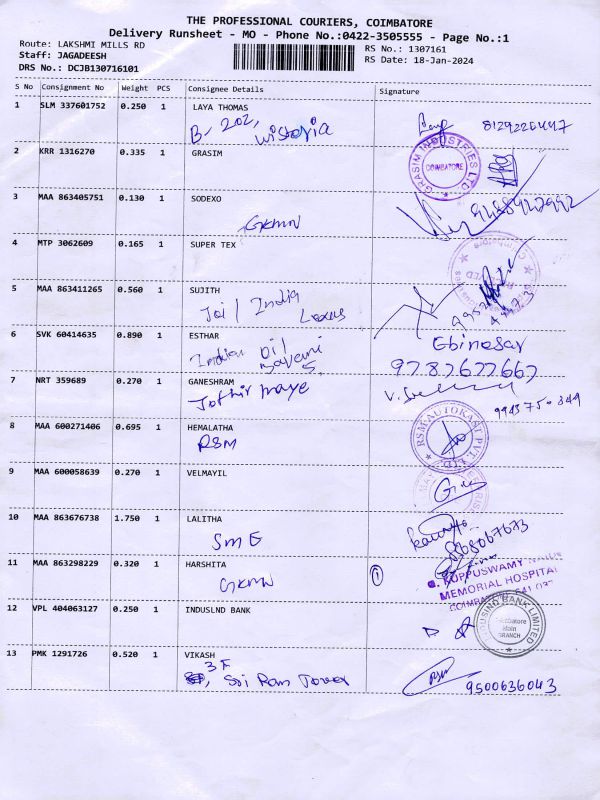 THE PROFESSIONAL COURIERS, COIMBATORE
Delivery Runsheet - MO - Phone No.:0422-3505555 - Page No.:1
Route: LAKSHMI MILLS RD
RS No.: 1307161
Staff: JAGADEESH
RS Date: 18-Jan-2024
DRS No.: DCJB130716101
S No Consignment No Weight PCS Consignee Details Signature
1 SLM 337601752 0.250 1 LAYA THOMAS
B-202, wistoria
2 KRR 1316270 0.335 1 GRASIM
GRASIM INDUSTRIES LTD
COIMBATORE
3 MAA 863405751 0.130 1 SODEXO
GKMN
4 MTP 3062609 0.165 1 SUPER TEX
5 MAA 863411265 0.560 1 SUJITH
Jai / India
Lexus
6 SVK 60414635 0.890 1 ESTHAR
Ebinasar
Indian Oil
9787677667
7 NRT 359689 0.270 1 GANESHRAM
Jothir maye
8 MAA 600271406 0.695 1 HEMALATHA
RSM
RSM AUTOKAST PVT LTD
9 MAA 600058639 0.270 1 VELMAYIL
10 MAA 863676738 1.750 1 LALITHA
SME
11 MAA 863298229 0.320 1 HARSHITA
GKMN
1
G. KUPPUSWAMY
MEMORIAL HOSPITAL
12 VPL 404063127 0.250 1 INDUSLND BANK
INDUSIND BANK LIMITED
Coimbatore
Main
BRANCH
13 PMK 1291726 0.520 1 VIKASH
3F
Sri Ram Tower
9500636043